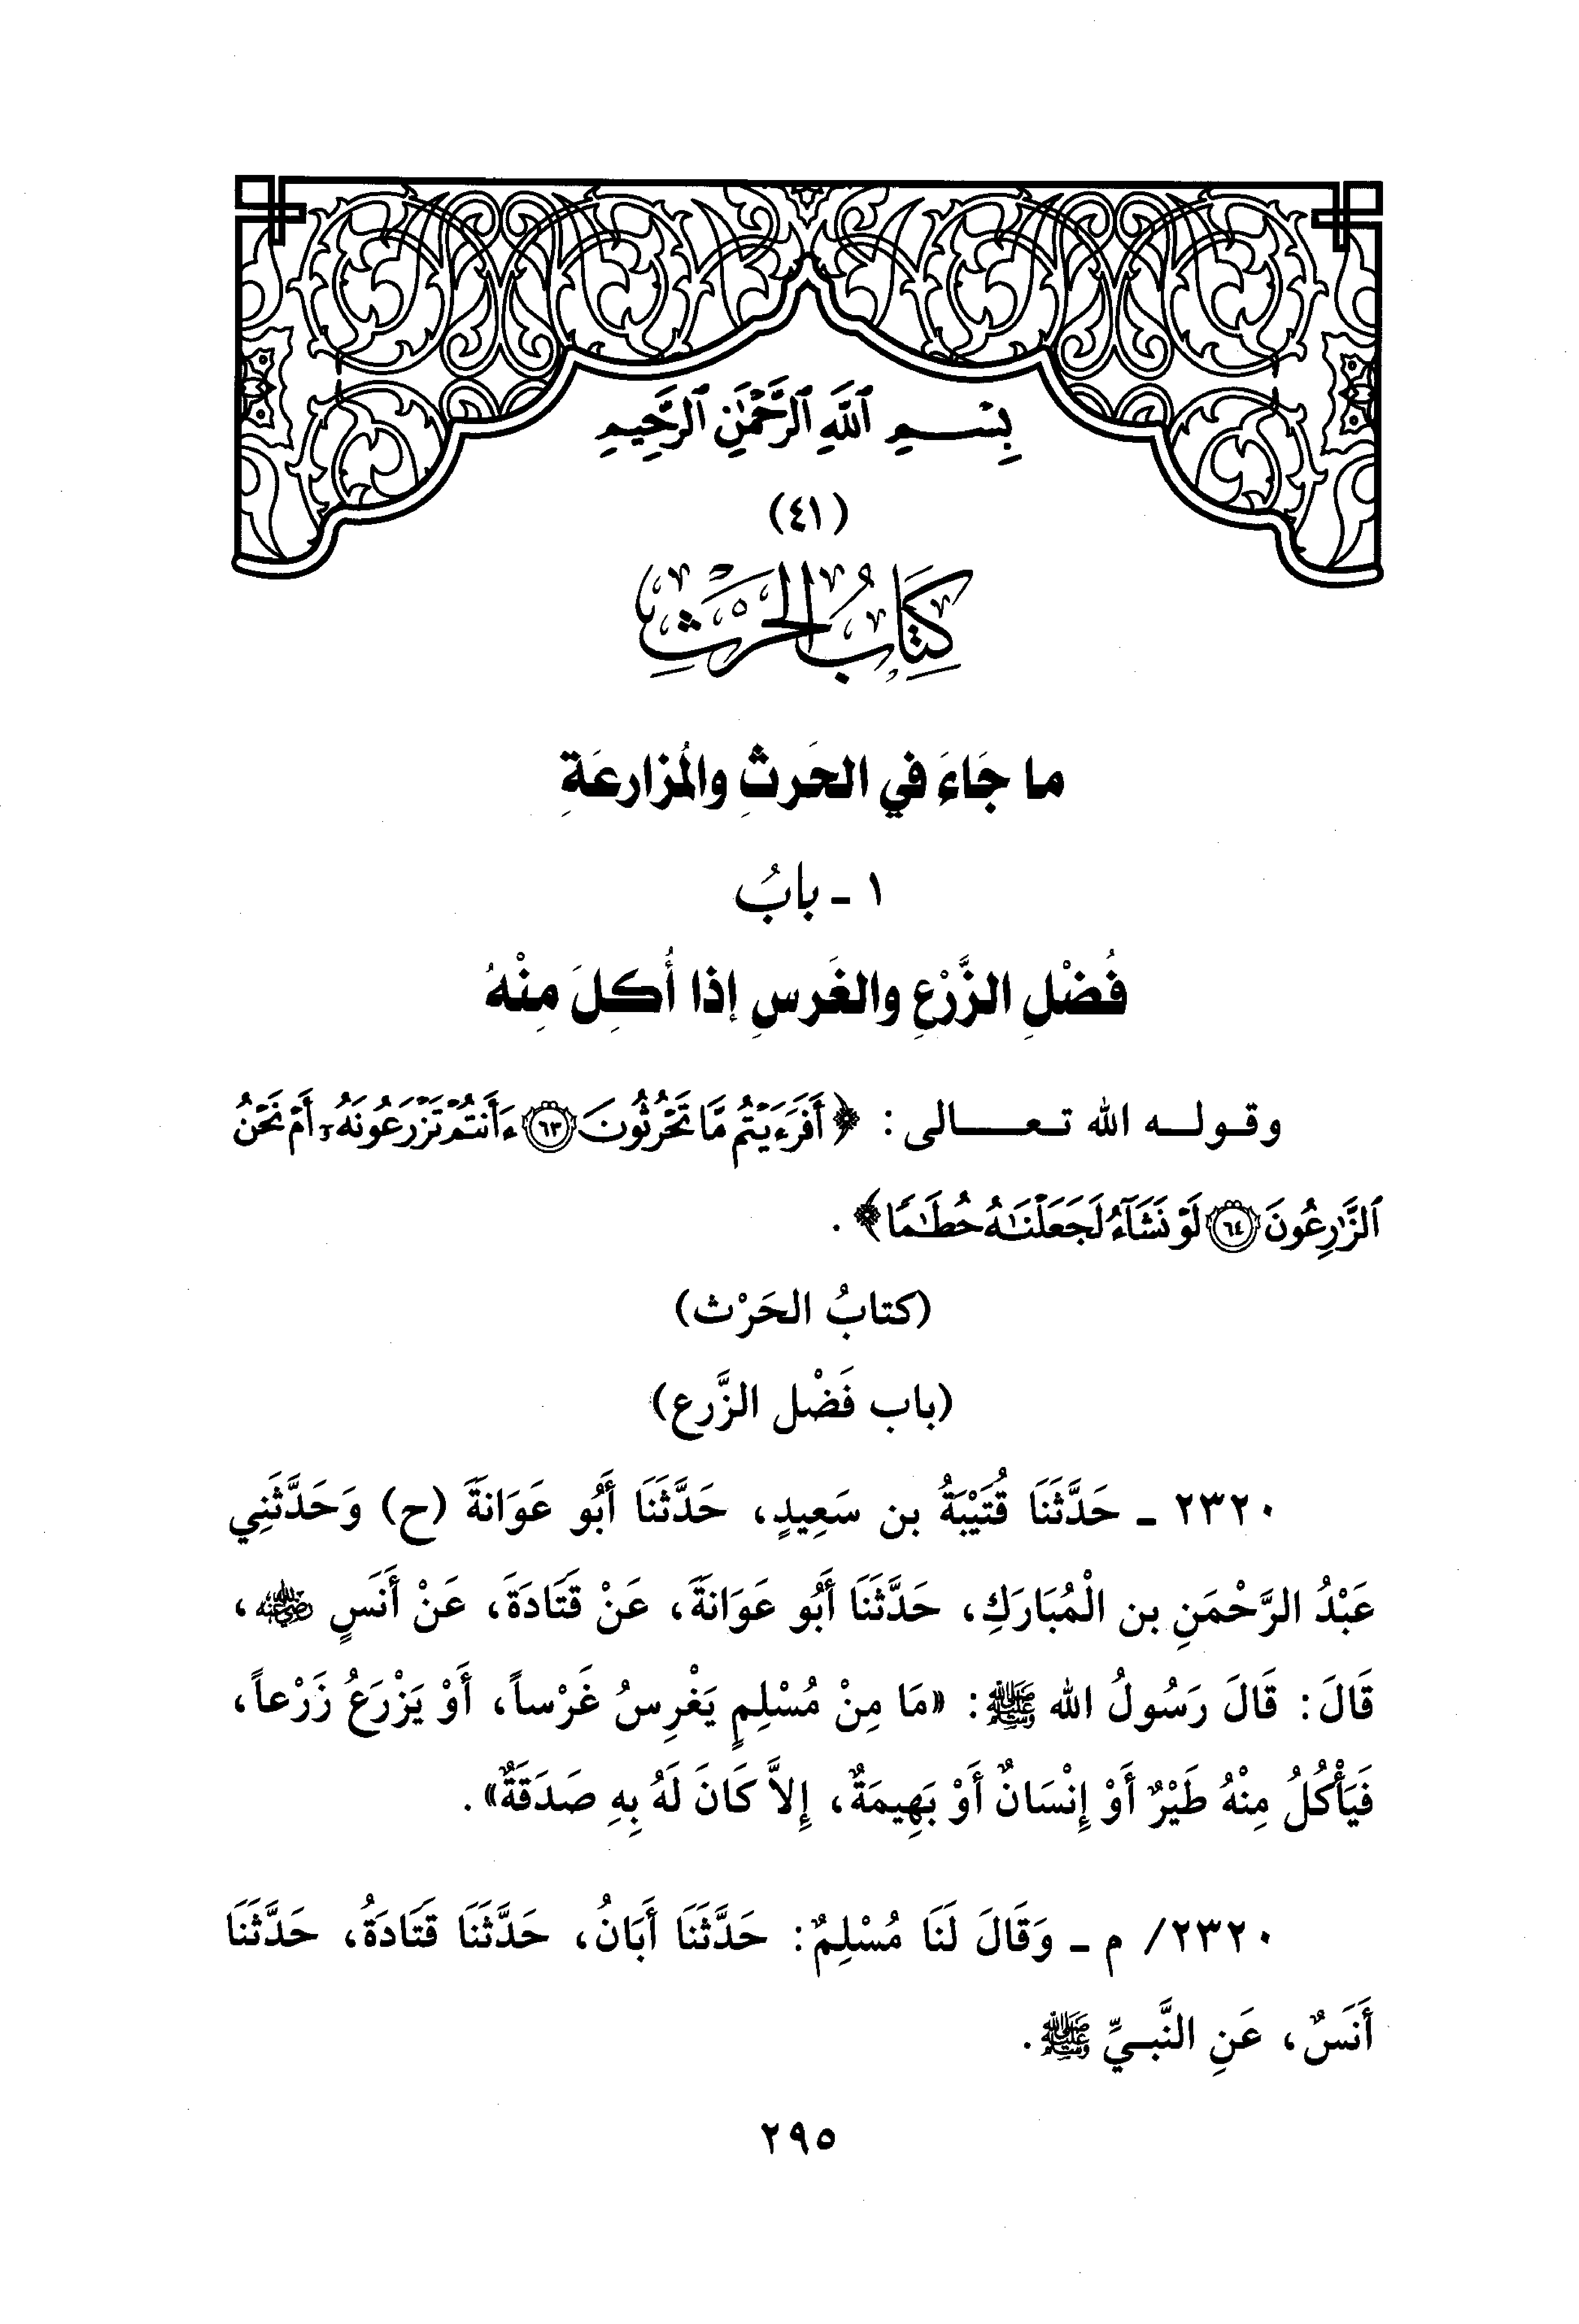 بِسْمِ ٱللَّهِ ٱلرَّحْمَٰنِ ٱلرَّحِيمِ
(٤١)
كِتَابُ الحَرْثِ
ما جَاءَ في الحَرثِ والمُزارعَةِ
١ ـ بابُ
فُضْلِ الزَّرْعِ والغَرسِ إذا أُكِلَ مِنْهُ
وقـولـه الله تـعـــالى: ﴿أَفَرَءَيْتُم مَّا تَحْرُثُونَ ٦٣ ءَأَنتُمْ تَزْرَعُونَهُۥٓ أَمْ نَحْنُ
ٱلزَّٰرِعُونَ ٦٤ لَوْ نَشَآءُ لَجَعَلْنَٰهُ حُطَٰمًا﴾.
(كتابُ الحَرْث)
(باب فَضْل الزَّرع)
٢٣٢٠ ـ حَدَّثَنَا قُتَيْبَةُ بن سَعِيدٍ، حَدَّثَنَا أَبُو عَوَانَةَ (ح) وَحَدَّثَنِي
عَبْدُ الرَّحْمَنِ بن الْمُبَارَكِ، حَدَّثَنَا أَبُو عَوَانَةَ، عَنْ قَتَادَةَ، عَنْ أَنَسٍ رضي الله عنه،
قَالَ: قَالَ رَسُولُ الله ﷺ: «مَا مِنْ مُسْلِمٍ يَغْرِسُ غَرْساً، أَوْ يَزْرَعُ زَرْعاً،
فَيَأْكُلُ مِنْهُ طَيْرٌ أَوْ إِنْسَانٌ أَوْ بَهِيمَةٌ، إِلاَّ كَانَ لَهُ بِهِ صَدَقَةٌ».
٢٣٢٠/ م ـ وَقَالَ لَنَا مُسْلِمٌ: حَدَّثَنَا أَبَانُ، حَدَّثَنَا قَتَادَةُ، حَدَّثَنَا
أَنَسٌ، عَنِ النَّبـيِّ ﷺ.
٢٩٥